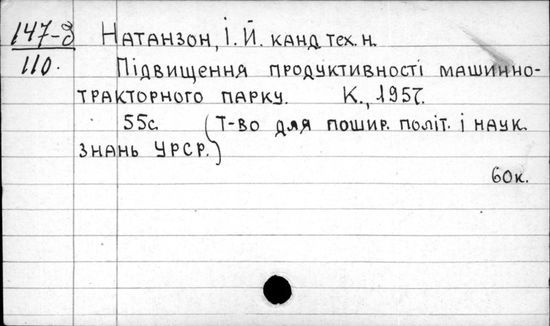 147-З Натанзон, І. Й. канд тех. н.
110. Підвищення продуктивності машинно-
тракторного парку. К., 1957.
55с. (Т-во для пошир. політ. і наук.
знань УРСР.)
60к.